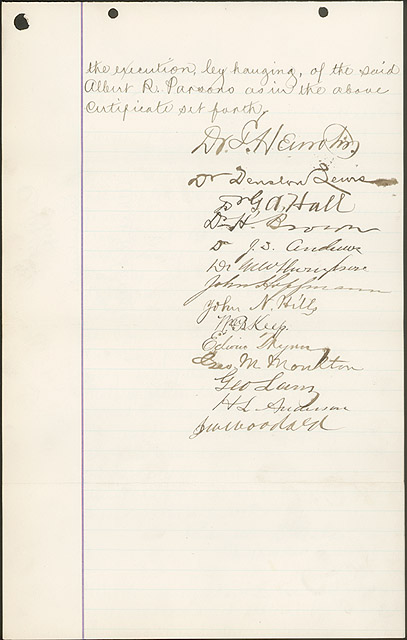 the execution, by hanging, of the said
Albert R. Parsons as in the above
Certificate set forth,
Dr.
Dr Denslow Lewis
Dr G A, Hall
Dr H. Brown
Dr J. S. Andrews
Dr
John Hoffmann
John N. Hills
Edwin Wynn
Geo, M Moulton
Geo Lunn
H L Anderson